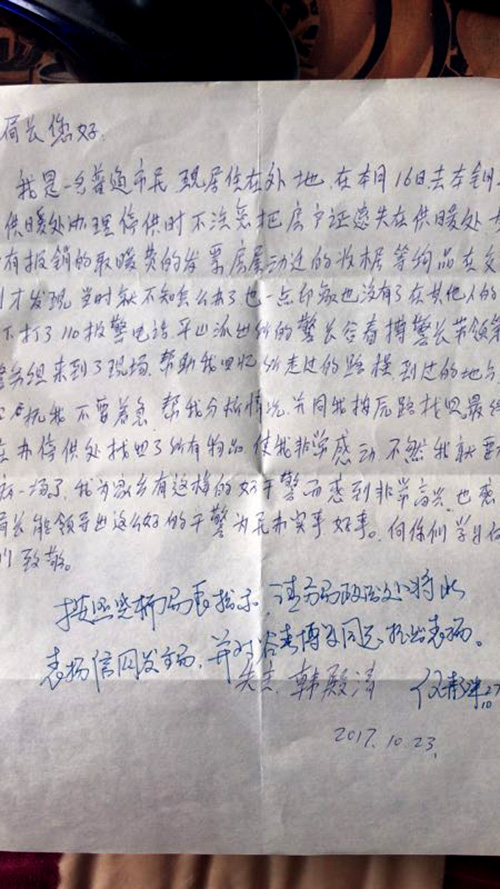 局长您好
我是一名普通市民 现居住在外地，在本月16日去本钢
供暖处办理停供时不注意把房产证遗失在供暖处
有报销的取暖费的发票房屋动迁的收据等物品在交
才发现，当时就不知怎么办了也一点印象也没有了在其他人的
打了110报警电话，平山派出所的警长谷春搏警长带领
警务组来到了现场，帮助我回忆所走过的路程，到过的地点
我不要着急，帮我分析情况，并同我按原路找回最终
在办停供处找回了所有物品，使我非常感动 不然我就要
一场了，我为家乡有这样的好干警而感到非常高兴 也感
局长能领导出这么好的干警为民办实事好事。向你们学习
们致敬。
按照 局长指示，请 局政治处将此
表扬信网发全局，并对谷春博等同志提出表扬。
韩殿清
2017.10.23